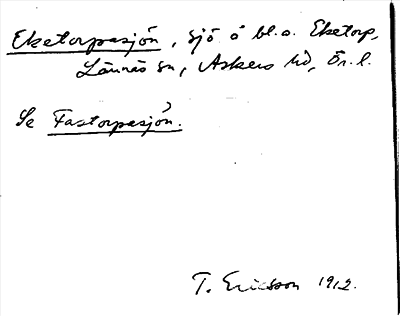 Eketorpasjön, sjö å bl.a. Eketorp,
Lännäs sn, Askers hd, Ör. l.
Se Fastorpasjön.
T. Ericsson 1912.